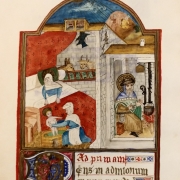 Ad primam
Eus in adiutorium